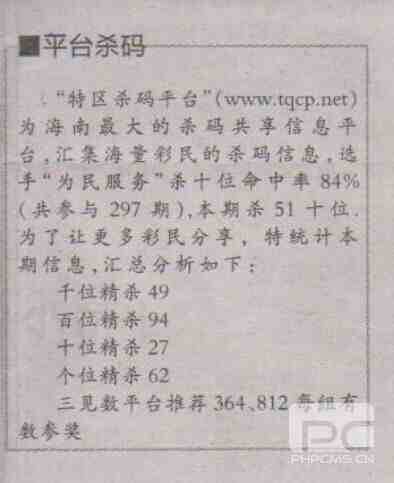 ■平台杀码
“特区杀码平台”(www.tqcp.net)
为海南最大的杀码共享信息平
台,汇集海量彩民的杀码信息,选
手“为民服务”杀十位命中率84%
(共参与297期),本期杀51十位.
为了让更多彩民分享,特统计本
期信息,汇总分析如下:
千位精杀49
百位精杀94
十位精杀27
个位精杀62
三见数平台推荐364、812每组有
数参奖
PC
PHPCMS.CN